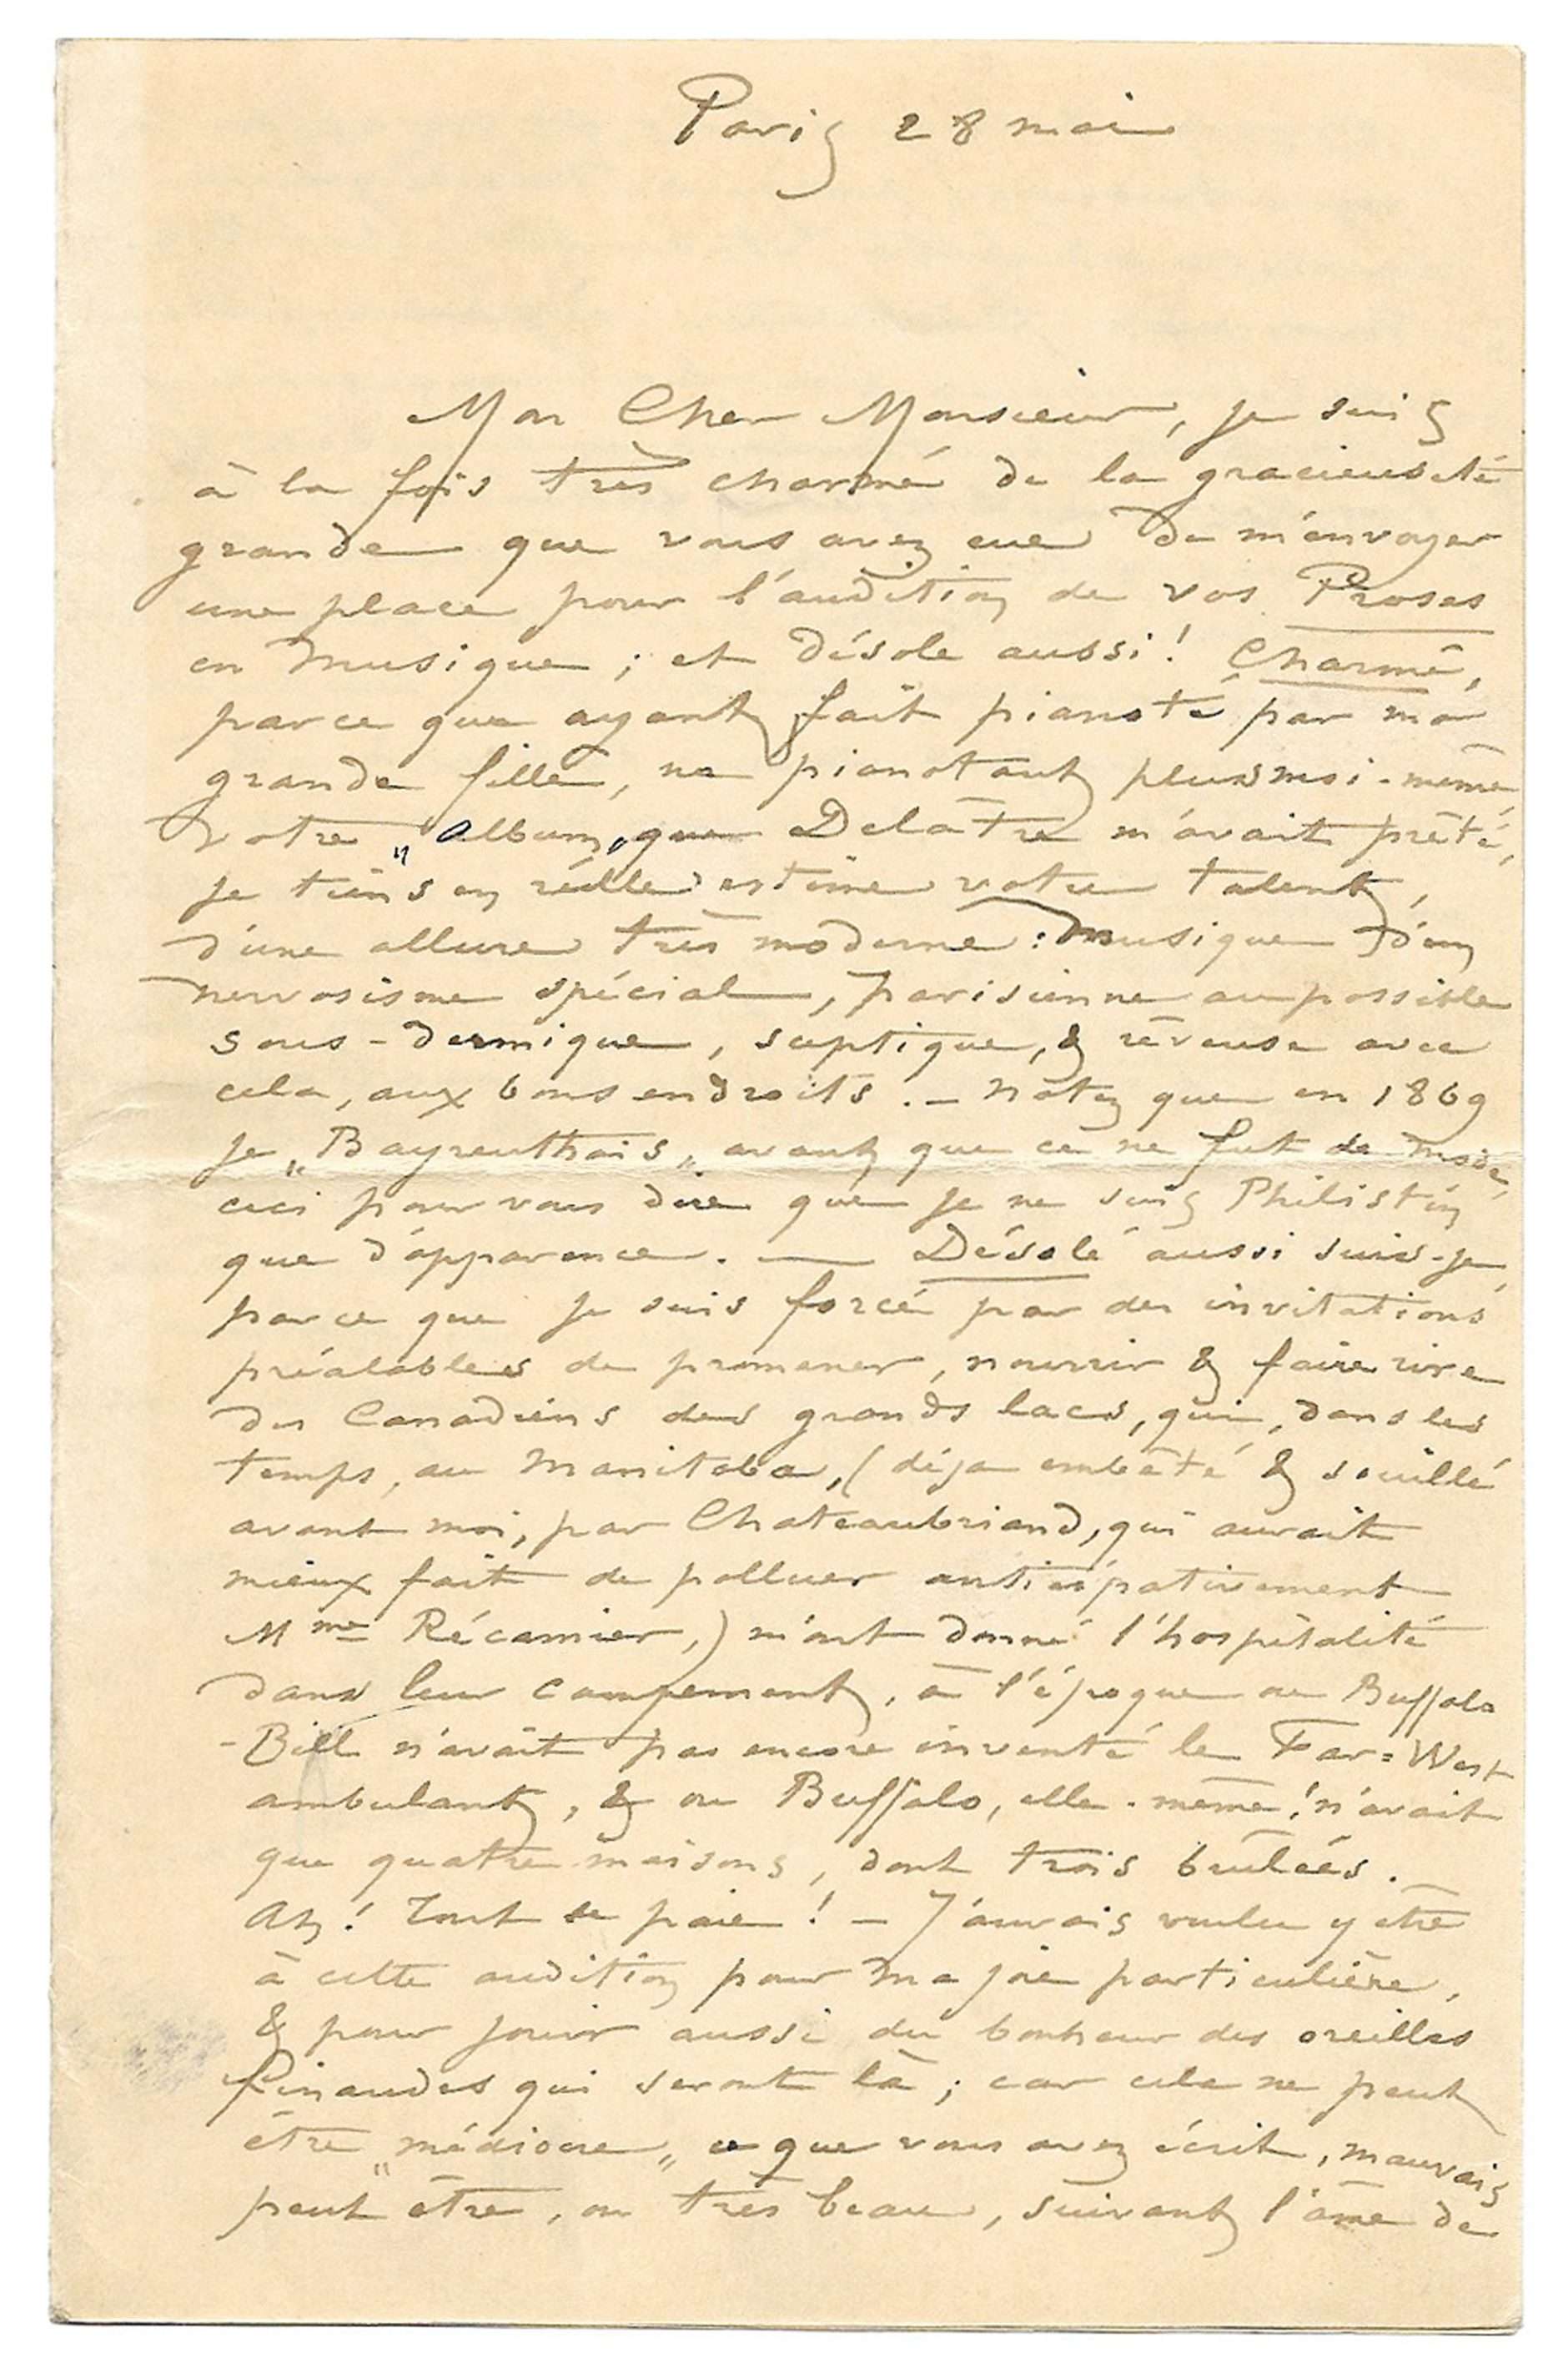 Paris 28 mai
Mon Cher Monsieur, je suis
à la fois très charmé de la gracieuseté
grande que vous avez eue de m'envoyer
une place pour l'audition de vos Proses
en musique ; et désole aussi ! Charmé,
parce que ayant fait pianoté par ma
grande fille, ne pianotant plus moi-même,
votre „Album„ que Delâtre m'avait prêté,
je tiens en réelle estime votre talent,
d'une allure très moderne : musique d'un
nervosisme spécial, parisienne au possible
sous-dermique, sceptique, & rêveuse avec
cela, aux bons endroits. — Notez que en 1869
je „Bayreuthais„ avant que ce ne fut de mode,
ceci pour vous dire que je ne suis Philistin
que d'apparence. — Désolé aussi suis-je,
parce que je suis forcé par des invitations
préalables de promener, nourrir & faire rire
des Canadiens des grands lacs, qui, dans les
temps, au Manitoba, (déja embêté & souillé
avant moi, par Chateaubriand, qui aurait
mieux fait de polluer anticipativement
Mme Récamier,) m'ont donné l'hospitalité
dans leur campement, à l'époque ou Buffalo
-Bill n'avait pas encore inventé le Far=West
ambulant, & ou Buffalo, elle-même ! n'avait
que quatre maisons, dont trois brûlées.
Ah ! Tout se paie ! — J'aurais voulu y être
à cette audition pour ma joie particulière,
& pour jouir aussi du bonheur des oreilles
finaudes qui seront là ; car cela ne peut
être „médiocre„ ce que vous avez écrit, mauvais
peut être, ou très beau, suivant l'âme de